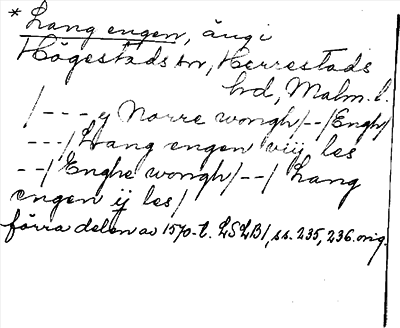 * Lang engen, äng i
Högestads sn, Herrestads
hd, Malm. l.
/---y Norre wongh/--/Engh/
---/Lang engen viij les
--/Enghe wongh/--/Lang
engen ij les/
förra delen av 1570-t. LSLB1, ss. 235, 236. orig.